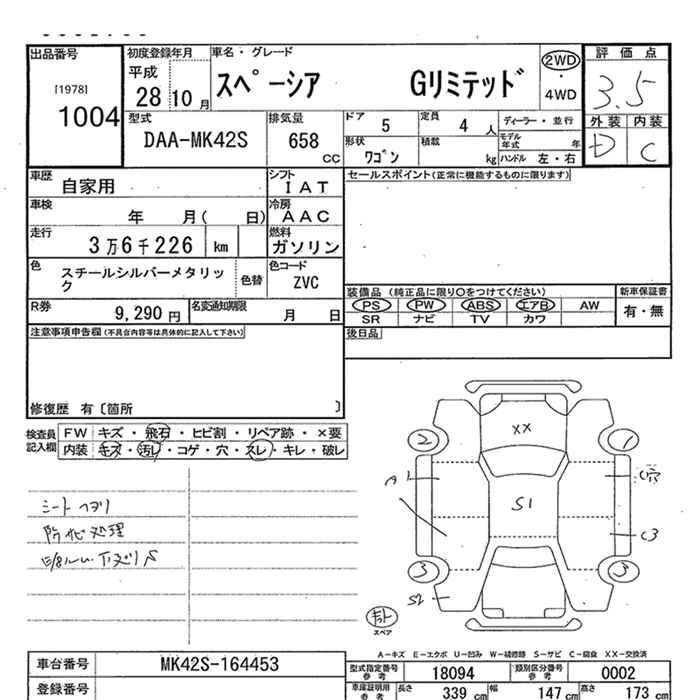 出品番号
[1978]
1004
初度登録年月
平成
28 10 月
車名・グレード
スペーシア Gリミテッド
2WD
・
4WD
評価点
3.5
外装 内装
D C
型式
DAA-MK42S
排気量
658
CC
ドア 5
定員 4 人
ディーラー・並行
形状 ワゴン
積載 kg
モデル年式 年
ハンドル 左・右
車歴 自家用
シフト IAT
セールスポイント(正常に機能するものに限ります)
車検 年 月( 日)
冷房 AAC
走行 3万6千226 km
燃料 ガソリン
色 スチールシルバーメタリック
色替
色コード ZVC
装備品 (純正品に限り〇をつけてください)
新車保証書
PS PW ABS エアB AW
有・無
SR ナビ TV カワ
R券 9,290 円
名変通知期限 月 日
後日品
注意事項申告欄(不具合内容等は具体的に記入して下さい)
修復歴 有〔箇所 〕
検査員記入欄
FW キズ・飛石・ヒビ割・リペア跡・×要
内装 キズ・汚レ・コゲ・穴・スレ・キレ・破レ
シートヘコリ
防サビ処理
XX
2 1
A1
S1
C穴
C3
3 3
S2
スペア
A-キズ E-エクボ U-凹み W-補修跡 S-サビ C-腐食 XX-交換済
車台番号 MK42S-164453
型式指定番号 参考 18094
類別区分番号 参考 0002
登録番号
車庫証明用 参考
長さ 339 cm 幅 147 cm 高さ 173 cm